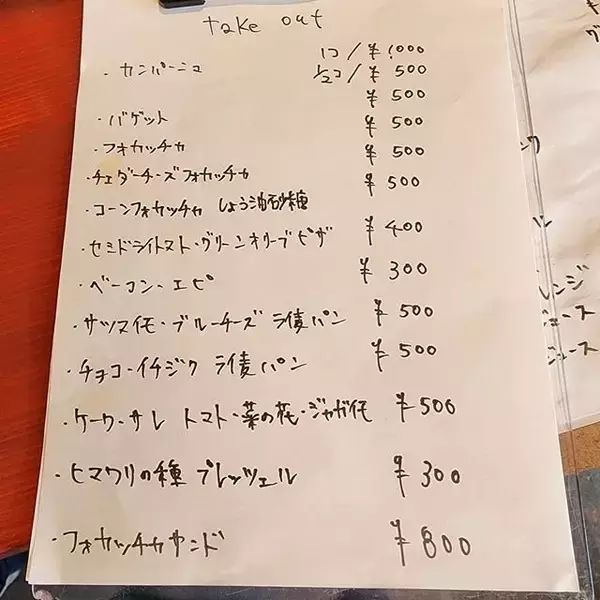 take out
・カンパーニュ 1コ/¥1,000
1/2コ/¥500
・バゲット ¥500
・フォカッチャ ¥500
・チェダーチーズフォカッチャ ¥500
・コーンフォカッチャ しょう油砂糖 ¥500
・セミドライトマト・グリーンオリーブピザ ¥400
・ベーコン・エピ ¥300
・サツマイモ・ブルーチーズ ライ麦パン ¥500
・チョコ・イチジク ライ麦パン ¥500
・ケーク・サレ トマト・菜の花・ジャガイモ ¥500
・ヒマワリの種 プレッツェル ¥300
・フォカッチャサンド ¥800
キ
グ
ル
レンジ
ジュース
ジュース